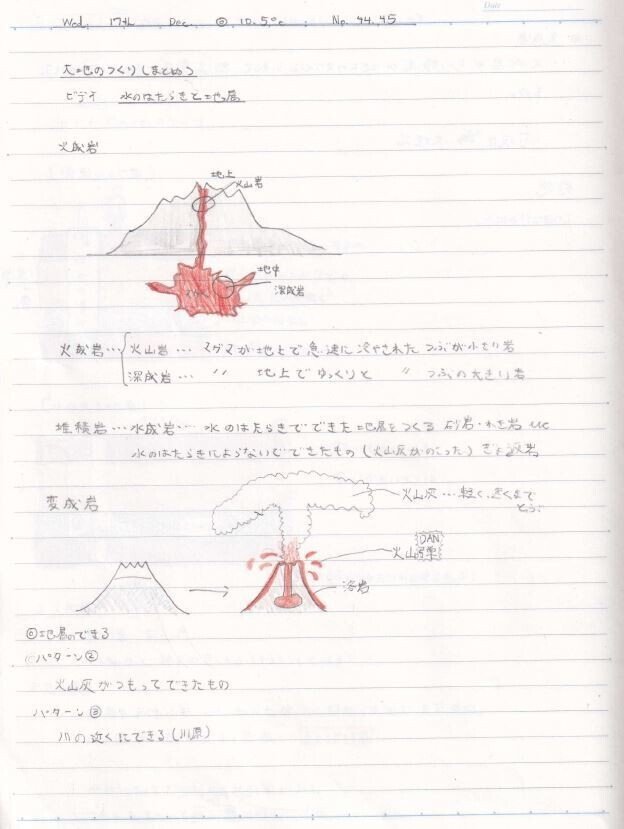 Date
Wed. 17th Dec. ◎ 10.5°c Np. 44.45
大地のつくり(まとめ)
ビデオ 水のはたらきと地層
火成岩
地上
火山岩
地中
深成岩
火成岩… 火山岩… マグマが地上で急速に冷やされた つぶが小さい岩
深成岩… 〃 地上でゆっくりと 〃 つぶの大きい岩
堆積岩…水成岩… 水のはたらきでできた地層をつくる 砂岩・れき岩 etc
水のはたらきによらないでできたもの (火山灰がのこった) ぎょう灰岩
変成岩
火山灰…軽く、遠くまで
とぶ
DAN
火山弾
溶岩
◎地層のできる
◎パターン②
火山灰がつもってできたもの
パターン③
川の近くにできる(川原)